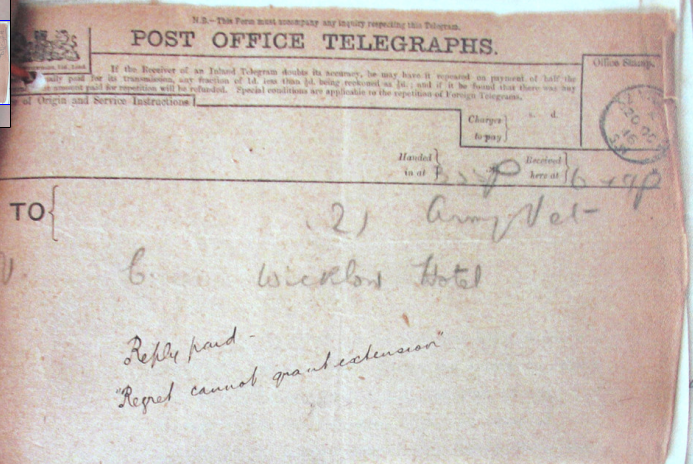 N.B.—This Form must accompany any inquiry respecting this Telegram.
POST OFFICE TELEGRAPHS.
Office Stamp.
If the Receiver of an Inland Telegram doubts its accuracy, he may have it repeated on payment of half the
paid for its transmission, any fraction of 1d. less than ½d. being reckoned as ½d.; and if it be found that there was any
amount paid for repetition will be refunded. Special conditions are applicable to the repetition of Foreign Telegrams.
of Origin and Service Instructions
Charges to pay
s. d.
Handed in at
Received here at
TO
(2) Army Vet
C. Wicklow Hotel
Reply paid -
"Regret cannot grant extension"